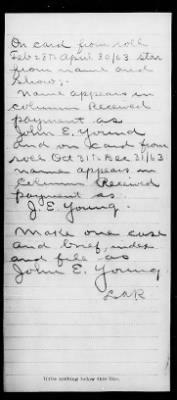 On card from roll
Feb 28 to April 30/63 star
from name and
show:-
Name appears in
column Received
payment as
John E. Yound
and on card from
roll Oct 31 to Dec 31/63
name appears in
column Received
payment as
J. E. Young.
Make one case
and brief, index
and file as
John E. Young
LAR
Write nothing below this line.